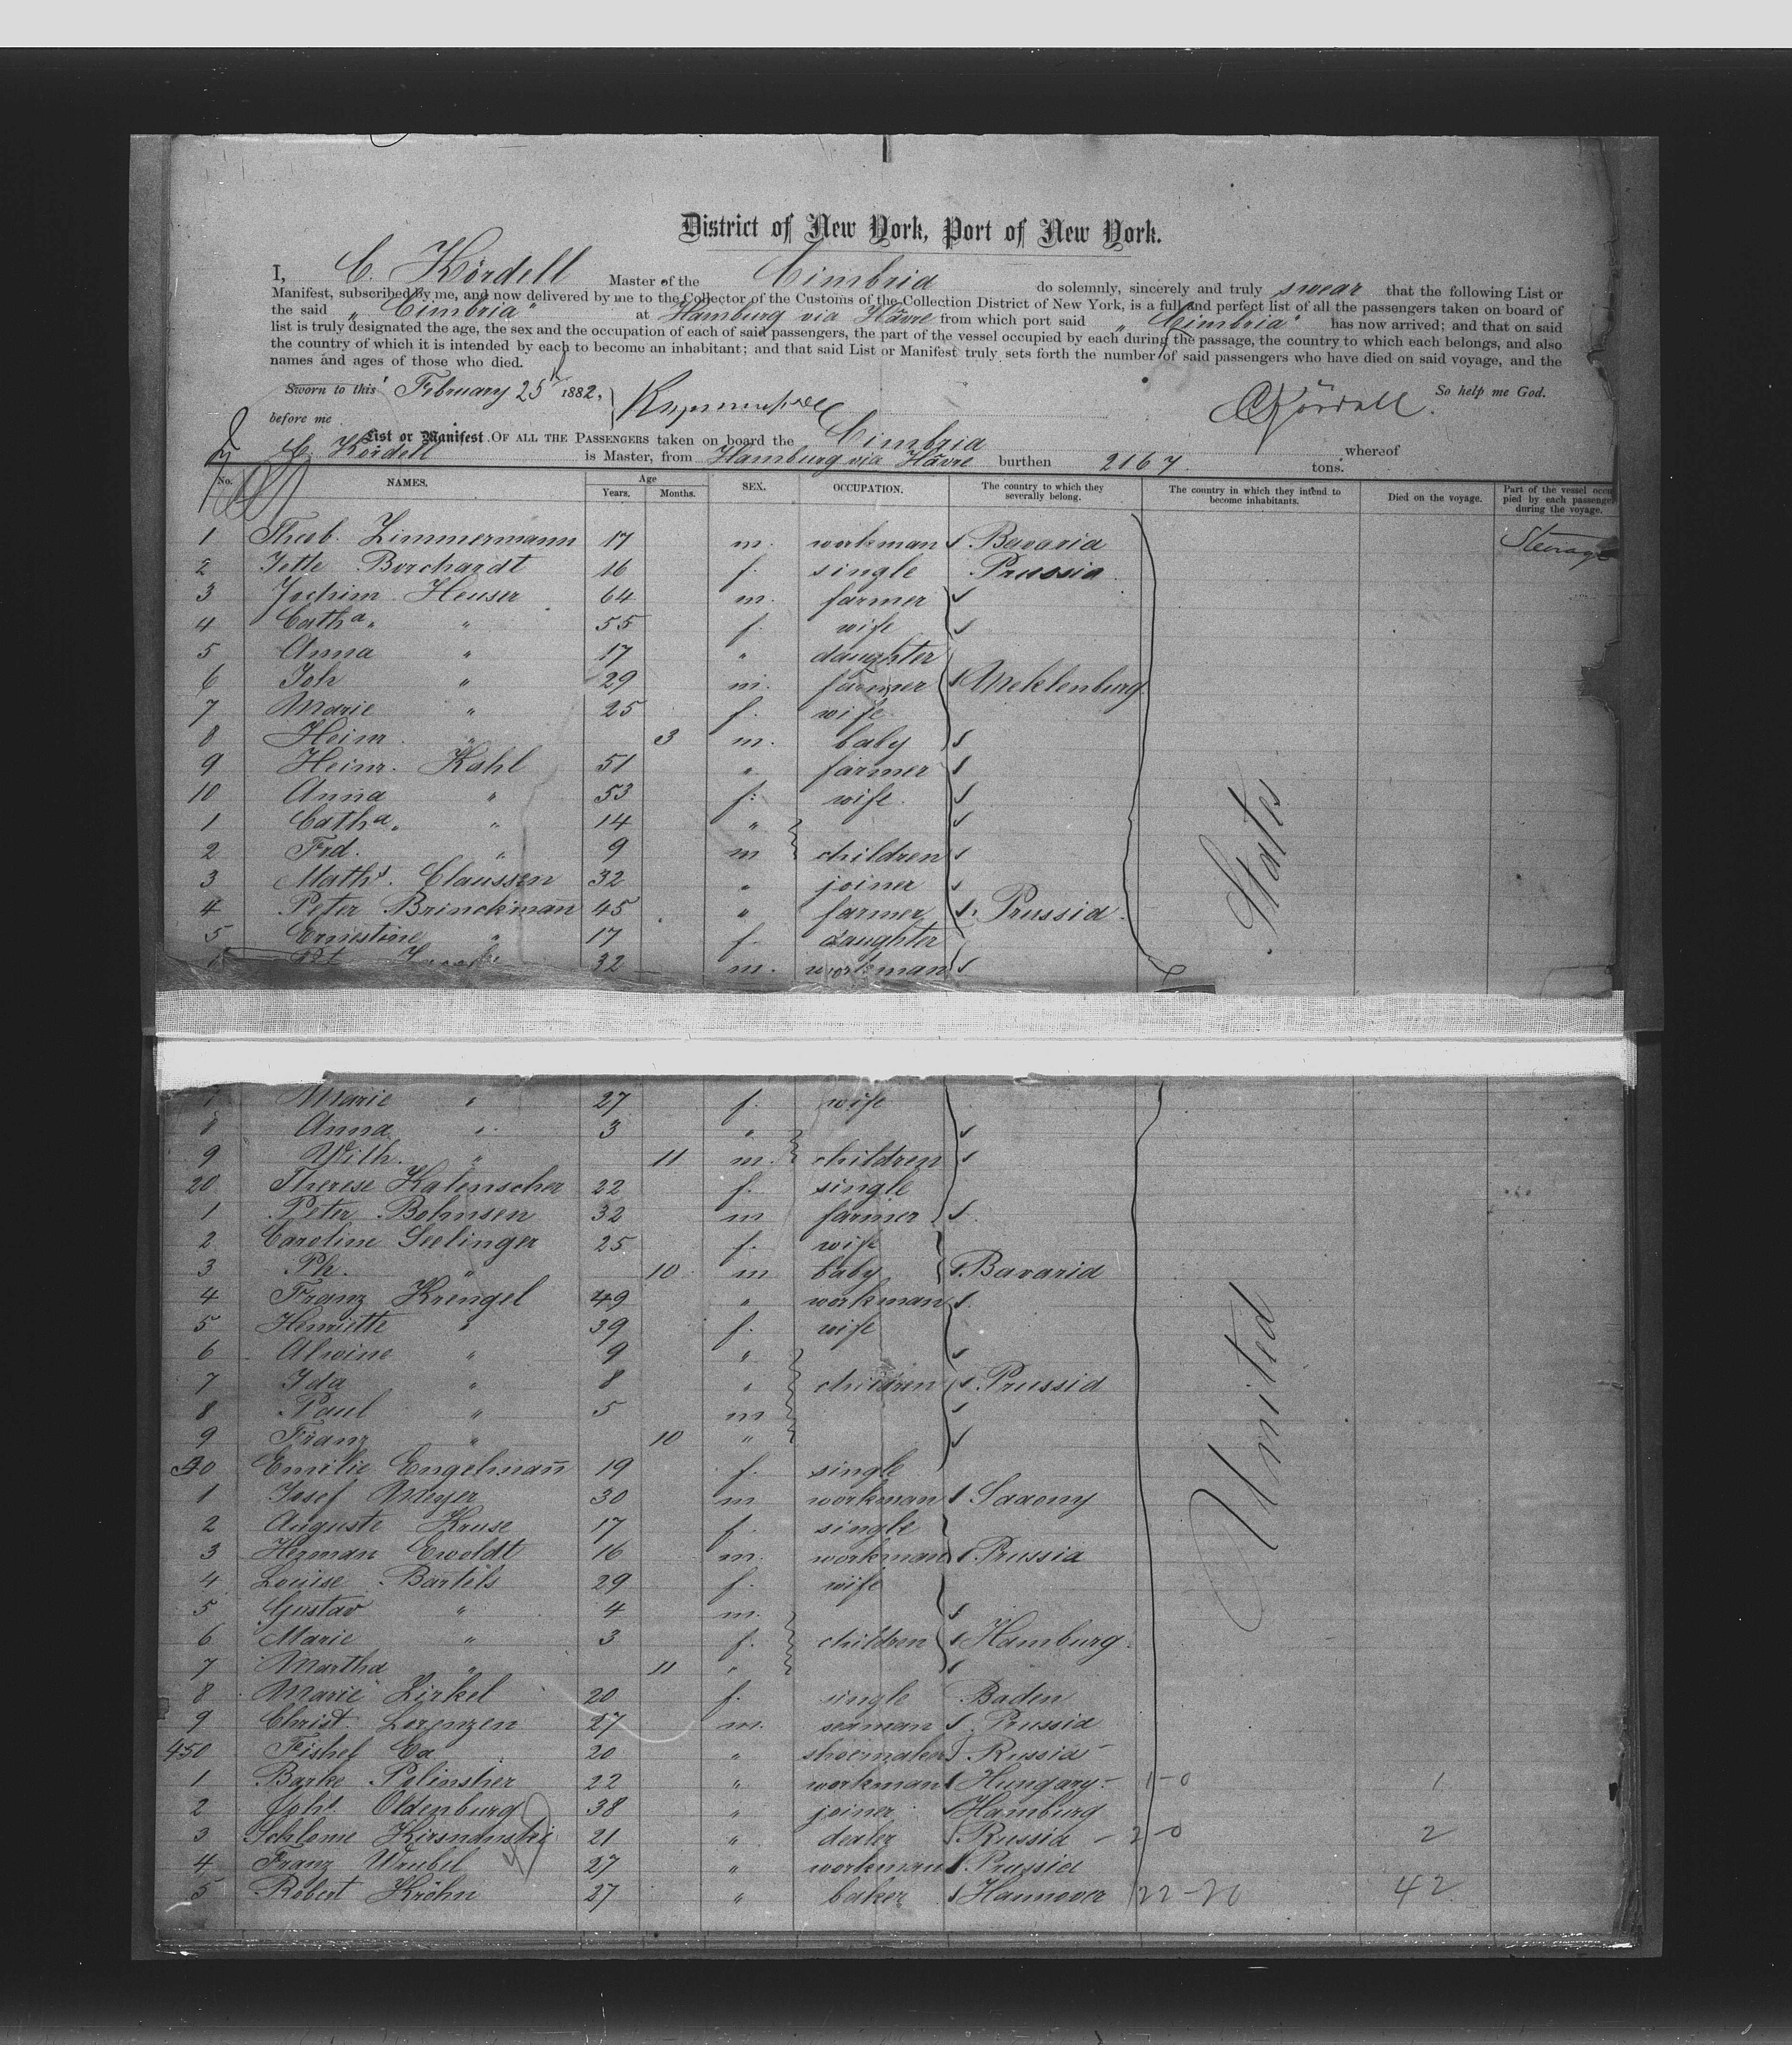 District of New York, Port of New York.
I, C. Kördell Master of the Cimbria do solemnly, sincerely and truly swear that the following List or
Manifest, subscribed by me, and now delivered by me to the Collector of the Customs of the Collection District of New York, is a full and perfect list of all the passengers taken on board of
the said „Cimbria" at Hamburg via Hâvre from which port said „Cimbria" has now arrived; and that on said
list is truly designated the age, the sex and the occupation of each of said passengers, the part of the vessel occupied by each during the passage, the country to which each belongs, and also
the country of which it is intended by each to become an inhabitant; and that said List or Manifest truly sets forth the number of said passengers who have died on said voyage, and the
names and ages of those who died.
So help me God.
Sworn to this February 25th 1882,
before me
CKördell.
List or Manifest OF ALL THE PASSENGERS taken on board the Cimbria whereof
C. Kördell is Master, from Hamburg via Hâvre burthen 2167 tons.
No. NAMES. Age Years. Months. SEX. OCCUPATION. The country to which they severally belong. The country in which they intend to become inhabitants. Died on the voyage. Part of the vessel occupied by each passenger during the voyage.
1 Theob. Zimmermann 17 m. workman Bavaria Steerage
2 Jette Borchardt 16 f. single Prussia
3 Jochim Heuser 64 m. farmer
4 Catha. " 55 f. wife
5 Anna " 17 " daughter
6 Joh " 29 m. farmer Meklenburg
7 Marie " 25 f. wife
8 Heinr. " 3 m. baby
9 Heinr. Kahl 51 " farmer
10 Anna " 53 f. wife
1 Catha. " 14 "
2 Frd. " 9 m children
3 Maths. Claussen 32 " joiner
4 Peter Brinckman 45 " farmer Prussia
5 Ernestine " 17 f. daughter
32 m. workman
7 Marie " 27 f. wife
8 Anna " 3 "
9 Wilh. " 11 m. children
20 Therese Kalenscher 22 f. single
1 Peter Bohnsen 32 m farmer
2 Caroline Seelinger 25 f. wife
3 Ph. " 10 m baby Bavaria
4 Franz Krengel 49 " workman
5 Henriette " 39 f. wife
6 Alwine " 9 "
7 Ida " 8 " children Prussia
8 Paul " 5 m
9 Franz " 10 "
30 Emilie Engelmann̄ 19 f. single
1 Josef Meyer 30 m workman Saxony
2 Auguste Kruse 17 f. single
3 Herman Ewoldt 16 m. workman Prussia
4 Louise Bartels 29 f. wife
5 Gustav " 4 m.
6 Marie " 3 f. children Hamburg.
7 Martha " 11 "
8 Marie Zirkel 20 f. single Baden
9 Christ. Lorenzen 27 m. seaman Prussia
450 Fishel Ca 20 " shoemaker Russia
1 Barke Polinsher 22 " workman Hungary 1-0 1
2 Johs. Oldenburg 38 " joiner Hamburg
3 Schlome Kirsnanski 21 " dealer Russia - 2-0 2
4 Franz Wrubel 27 " workman Prussia
5 Robert Kröhn 27 " baker Hannover 22-20 42
United States